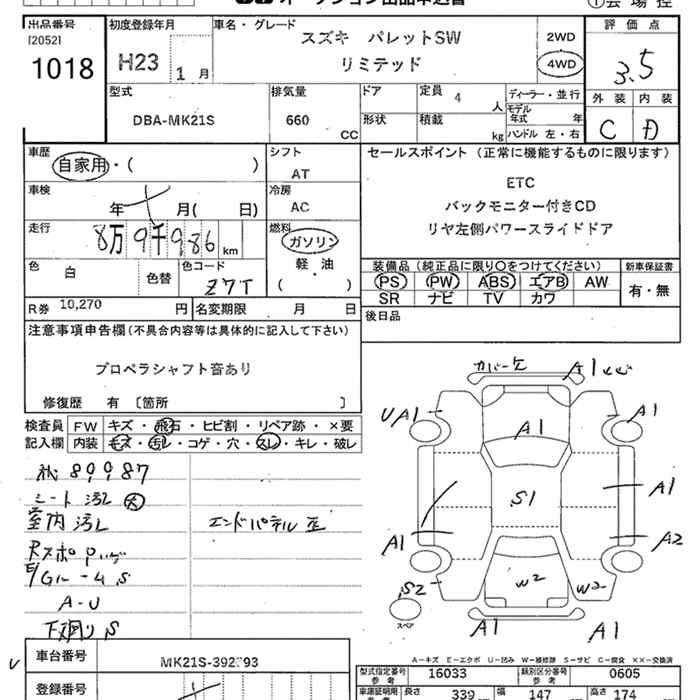 オークション出品申込書
①会場控
出品番号 初度登録年月 車名・グレード 評価点
[2052]
1018
H23 1月
スズキ パレットSW
リミテッド
2WD
4WD
3.5
型式 排気量 ドア 定員 4 人 ディーラー・並行
モデル年式 年
外装 内装
DBA-MK21S 660 CC
形状 積載 kg ハンドル 左・右
C D
車歴
自家用・( )
シフト
AT
セールスポイント(正常に機能するものに限ります)
ETC
バックモニター付きCD
リヤ左側パワースライドドア
車検
年 月( 日)
冷房
AC
走行
8万9千986 km
燃料
ガソリン
軽・油
( )
色 白 色替 色コード Z7T
装備品(純正品に限り○をつけてください) 新車保証書
PS PW ABS エアB AW
SR ナビ TV カワ
有・無
R券 10,270 円 名変期限 月 日
後日品
注意事項申告欄(不具合内容等は具体的に記入して下さい)
プロペラシャフト音あり
修復歴 有 〔箇所 〕
検査員 FW キズ・飛石・ヒビ割・リペア跡・×要
記入欄 内装 キズ・汚レ・コゲ・穴・スレ・キレ・破レ
89987
シート汚レ 大
室内汚レ
エンドパネル歪
A-U
下廻りS
カバー欠
A1
UA1
A1
A1
S1
A1
A1
A2
W2
W2
S2
スペア
A1
A1
A-キズ E-エクボ U-凹み W-補修跡 S-サビ C-腐食 ××-交換済
車台番号 MK21S-392793
登録番号
型式指定番号 参考 16033 類別区分番号 参考 0605
車庫証明用 参考 長さ 339 幅 147 高さ 174